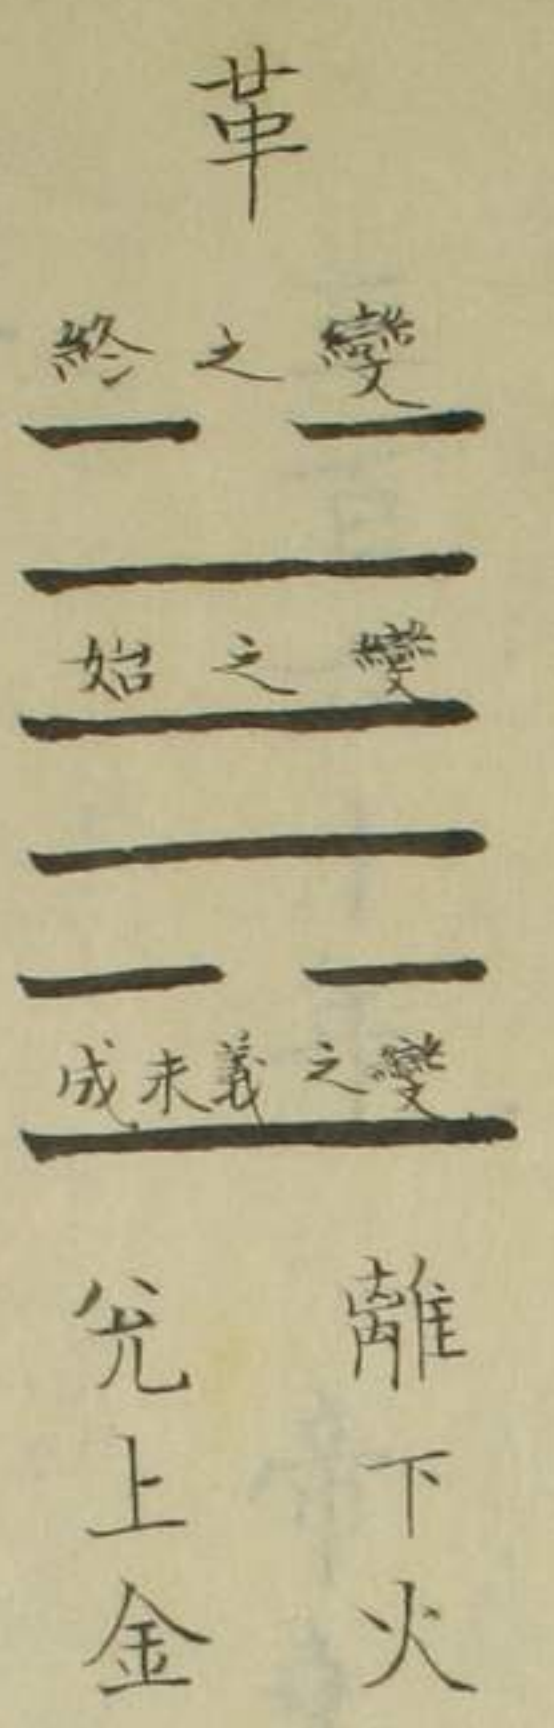 革
變之終
變之始
變之義未成
離下火
兌上金